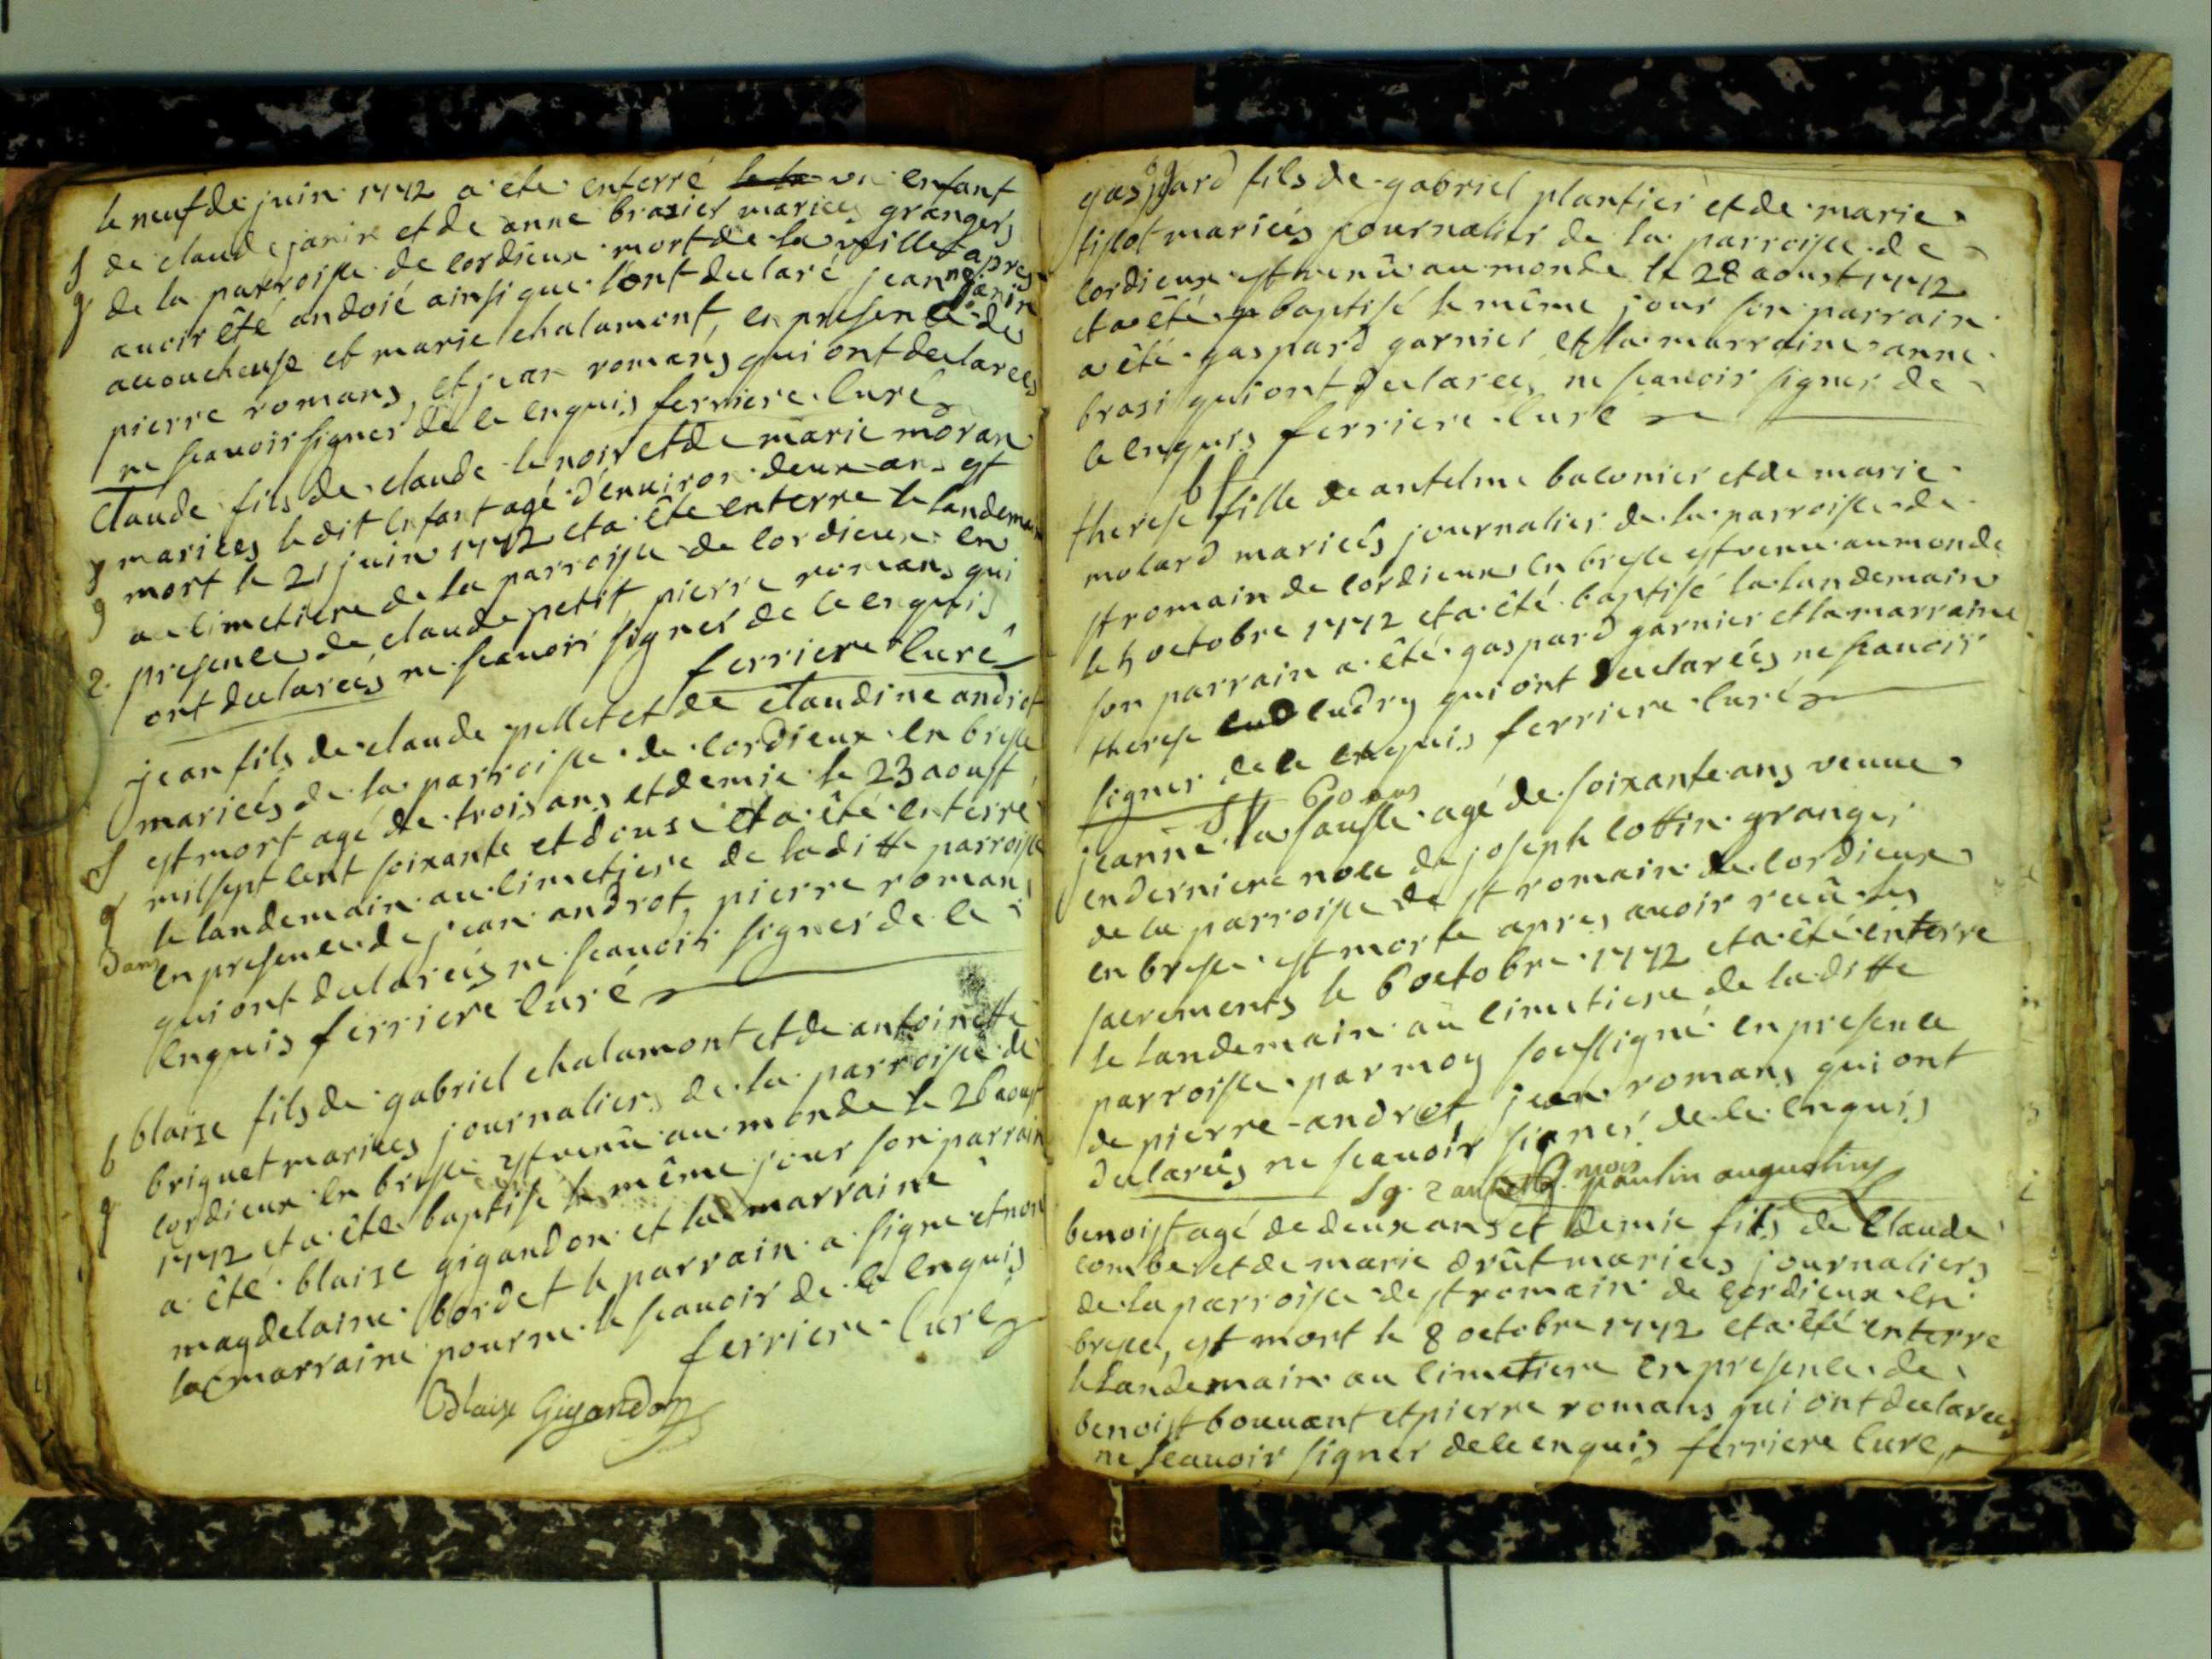 le neuf de juin 1772 a ete enterré un enfant
de claude janin et de anne brasier mariees grangers
de la parroisse de cordieux mort de la veille apres
avoir êté ondoié ainsi que l'ont declaré jeanne janin
accoucheuse et marie chalamont, en presence de
pierre romans, et jean romans qui ont declarees
ne scavoir signer de ce enquis ferriere curé
S
g
claude fils de claude lenoir et de marie moran
mariees le dit enfant agé d'environ deux ans est
mort le 21 juin 1772 et a êtê enterre le landemain
au cimetiere de la parroisse de cordieux en
presence de claude petit, pierre romans qui
ont declareés ne scavoir signer de ce enquis
ferriere curé
g
2
jean fils de claude pellet et de claudine androt
marieés de la parroisse de cordieux en bresse
est mort agé de trois ans et demie le 23 aoust
mil sept cent soixante et douse et a êté enterré
le landemain au cimetiere de laditte parroisse
en presence de jean androt, pierre romans
qui ont declareés ne scavoir signer de ce
enquis ferriere curé
S
g
3 ans
blaize fils de gabriel chalamont et de antoinette
briquet mariees journaliers de la parroisse de
cordieux en bresse est venû au monde le 26 aoust
1772 et a êté baptisé le même jour son parrain
a êté blaize gigandon et la marraine
magdelaine bordet le parrain a signe et non
la marraine pour ne le scavoir de ce enquis
ferriere curé
Blaize Gigandon
b
g
b g
gaspard fils de gabriel plantier et de marie
tissot marieés journalier de la parroisse de
cordieux est venû au monde le 28 aoust 1772
et a êté baptisé le même jour son parrain
a êté gaspard garnier et la marraine anne
brasi qui ont declarees ne scavoir signer de
ce enquis ferriere curé
b f
therese fille de antelme baconier et de marie
molard marieés journalier de la parroisse de
st romain de cordieux en bresse est venu au monde
le 5 octobre 1772 et a êté baptisé la landemain
son parrain a êté gaspard garnier et la marraine
therese cudry qui ont declareés ne scavoir
signer de ce enquis ferriere curé
S f 60 ans
jeanne la sausse agé de soixante ans veuve
en derniere noce de joseph cottin granger
de la parroisse de st romain de cordieux
en bresse est morte apres avoir reçû les
sacrements le 6 octobre 1772 et a êté enterre
le landemain au cimetiere de laditte
parroisse par moy soussigné en presence
de pierre androt jean romans qui ont
declareés ne scavoir signer de ce enquis
paulin augustin
S g 2 ans et 6 mois
benoist agé de deux ans et demie fils de claude
combe et de marie drût mariees journaliers
de la parroisse de st romain de cordieux en
bresse, est mort le 8 octobre 1772 et a êté enterre
le landemain au cimetiere en presence de
benoist bouvant et pierre romans qui ont declarees
ne scavoir signer de ce enquis ferriere curé